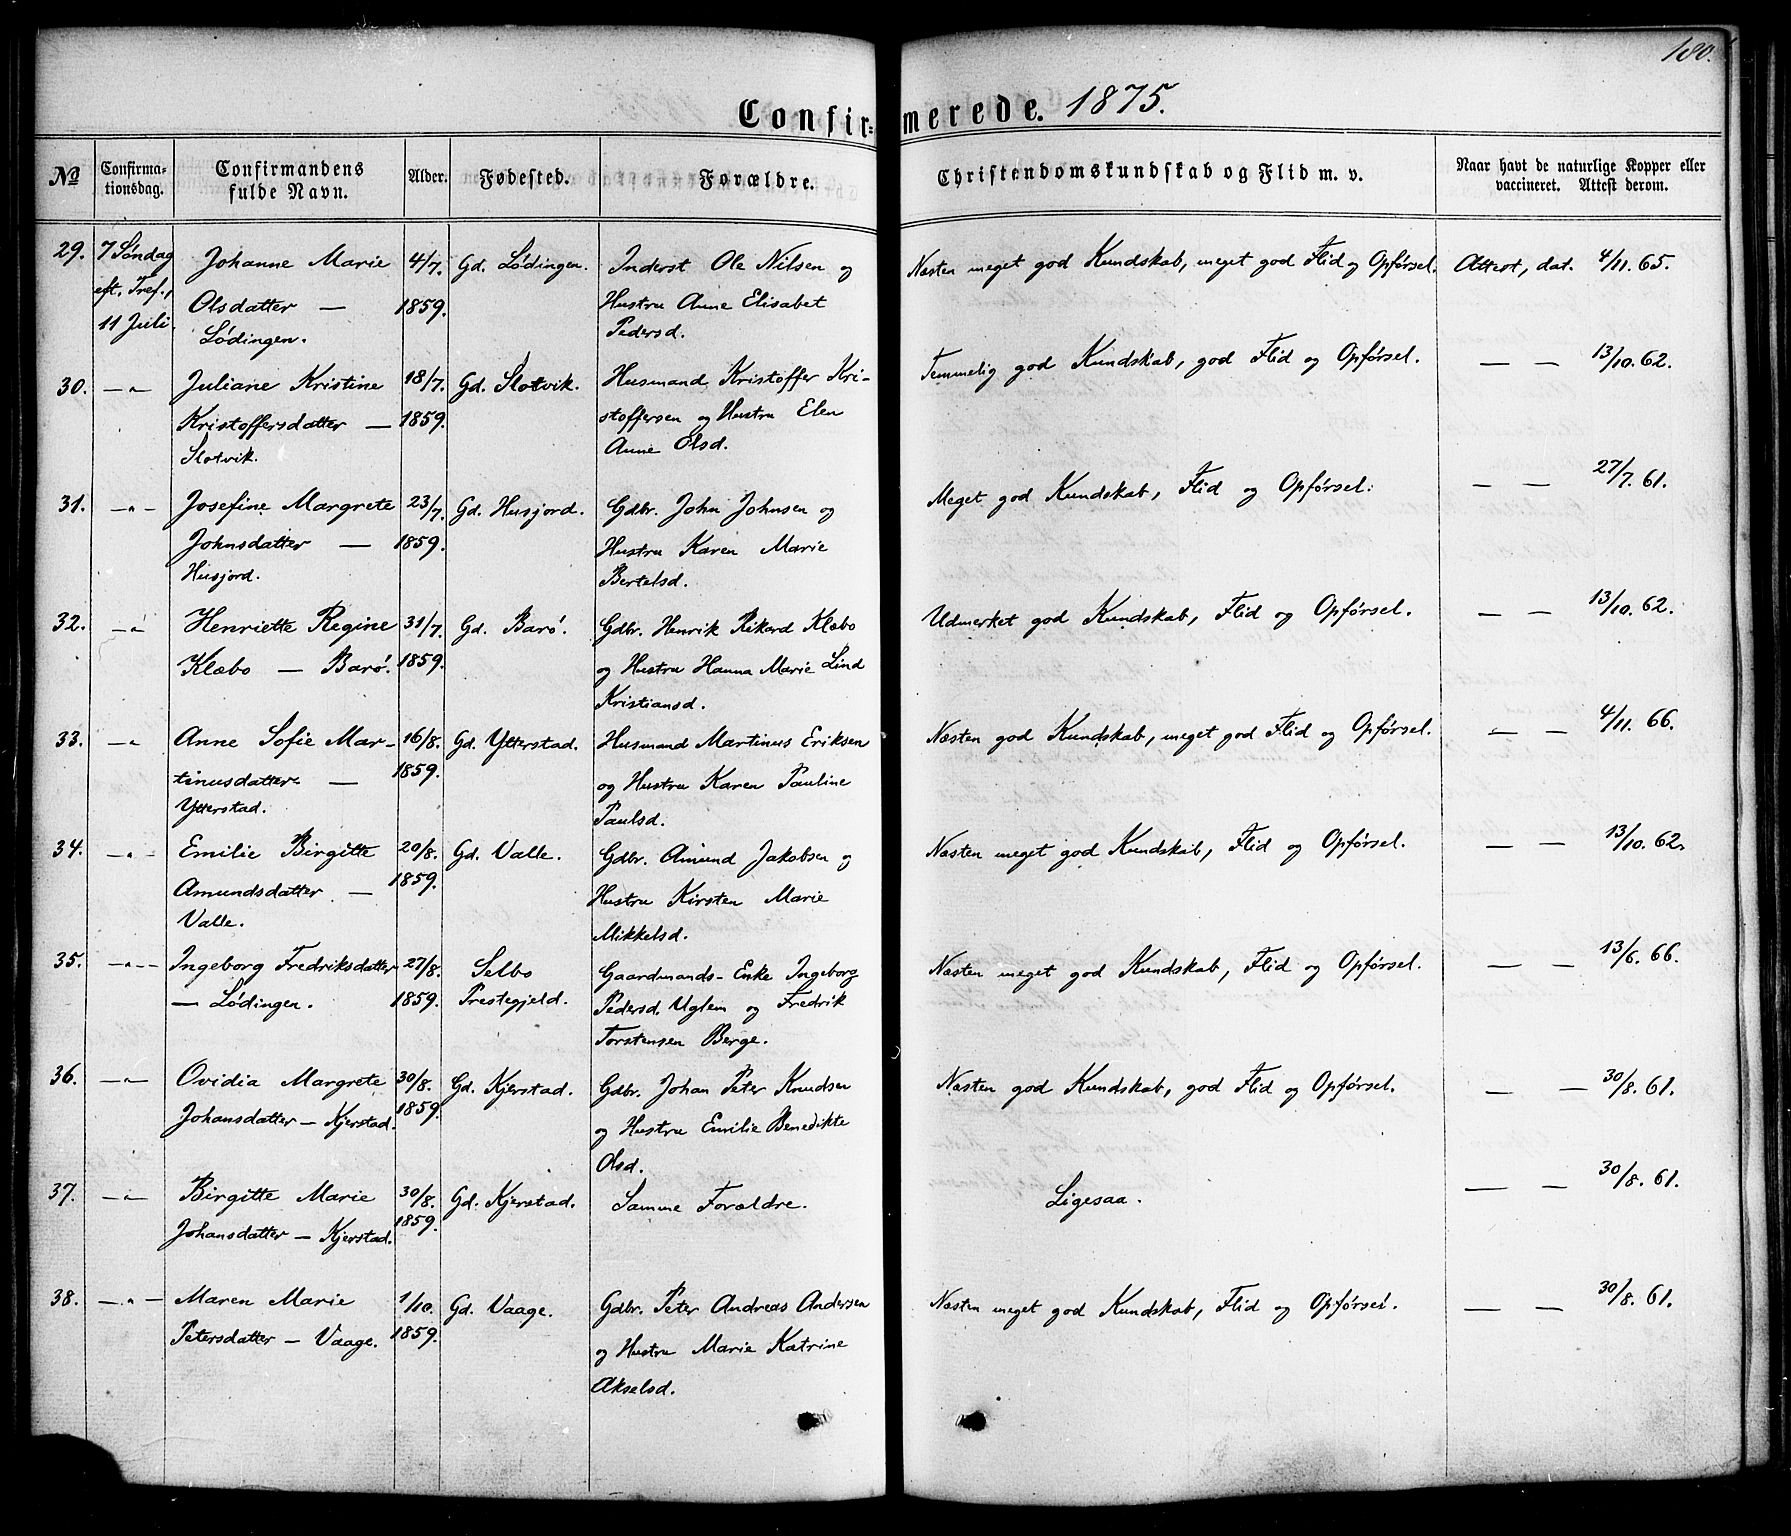 180.
Confir= merede. 1875.
No Confirma-tionsdag. Confirmandens fulde Navn. Alder. Fødested. Forældre. Christendomskundskab og Flid m. v. Naar havt de naturlige Kopper eller vaccineret. Attest derom.
29. 7 Søndag Johanne Marie 4/7. Gd. Lødingen. Inderst Ole Nilsen og Næsten meget god Kundskab, meget god Flid og Opførsel. Attest, dat. 4/11. 65.
eft. Tref., Olsdatter — 1859. Hustru Anne Elisabet
11 Juli. Lødingen. Pedersd.
30. —"— Juliane Kristine 18/7. Gd. Slotvik. Husmand Kristoffer Kri- Temmelig god Kundskab, god Flid og Opførsel. — — 13/10. 62.
Kristoffersdatter — 1859. stoffersen og Hustru Elen
Slotvik. Anne Olsd.
31. —"— Josefine Margrete 23/7. Gd. Husjord. Gdbr. John Johnsen og Meget god Kundskab, Flid og Opførsel. — — 27/7. 61.
Johnsdatter — 1859. Hustru Karen Marie
Husjord. Bertelsd.
32. —"— Henriette Regine 31/7. Gd. Barø. Gdbr. Henrik Rikard Klæbo Udmerket god Kundskab, Flid og Opførsel. — — 13/10. 62.
Klæbo — Barø. 1859. og Hustru Hanna Marie Lind
Kristiansd.
33. —"— Anne Sofie Mar- 16/8. Gd. Ytterstad. Husmand Martinus Eriksen Næsten god Kundskab, meget god Flid og Opførsel. — — 4/11. 66.
tinusdatter — 1859. og Hustru Karen Pauline
Ytterstad. Paulsd.
34. —"— Emilie Birgitte 20/8. Gd. Valle. Gdbr. Amund Jakobsen og Næsten meget god Kundskab, Flid og Opførsel. — — 13/10. 62.
Amundsdatter — 1859. Hustru Kirsten Marie
Valle. Mikkelsd.
35. —"— Ingeborg Fredriksdatter 27/8. Selbo Gaardmands-Enke Ingeborg Næsten meget god Kundskab, Flid og Opførsel. — — 13/6. 66.
— Lødingen. 1859. Prestegjeld. Pedersd. Uglem og Fredrik
Torstensen Berge.
36. —"— Ovidia Margrete 30/8. Gd. Kjerstad. Gdbr. Johan Peter Knudsen Næsten god Kundskab, god Flid og Opførsel. — — 30/8. 61.
Johansdatter — Kjerstad. 1859. og Hustru Emilie Benedikte
Olsd.
37. —"— Birgitte Marie 30/8. Gd. Kjerstad. Samme Forældre. Ligesaa. — — 30/8. 61.
Johansdatter — Kjerstad. 1859.
38. —"— Maren Marie 1/10. Gd. Vaage. Gdbr. Peter Andreas Andersen Næsten meget god Kundskab, Flid og Opførsel. — — 30/8. 61.
Petersdatter — Vaage. 1859. og Hustru Marie Katrine
Akselsd.